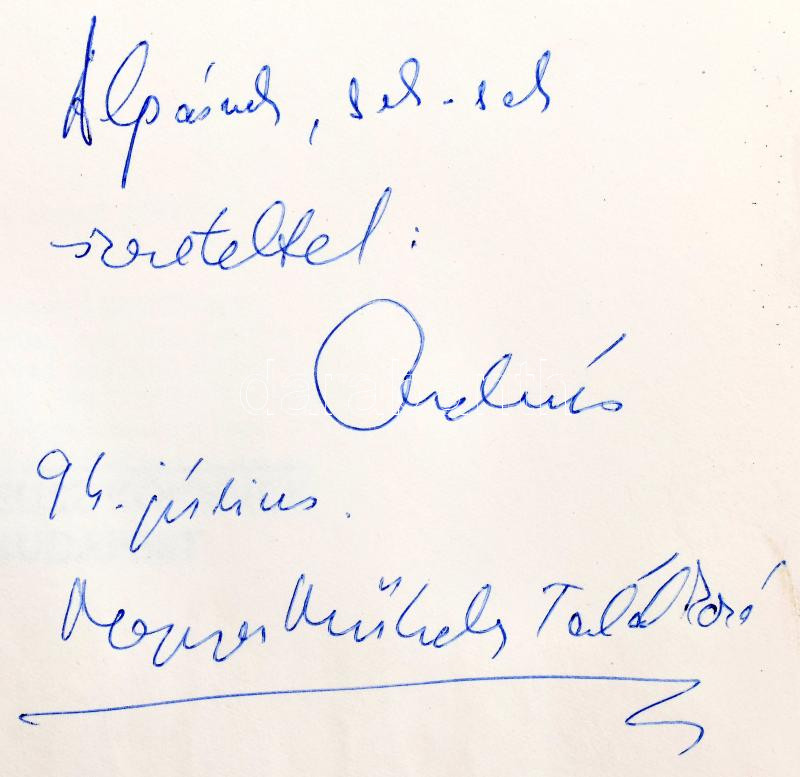 Alpárnak, sok-sok
szeretettel:
András
94. július.
Magyar Műhely Találkozó